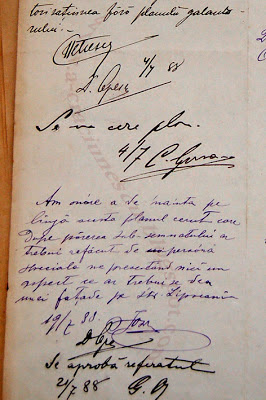 torisațiunea fără planulu galanta-
rului.
4/7 88
Se va cere plan.
4/7 C.
Am onóre a Ve nainta pe
lîngă acesta planul cerut care
Dupe părerea sub-semnatului ar
trebui refăcut de persónă
speciala ne presentând nici un
raport ce ar trebui se dea
unei fațade pe str. Lipscani
19/7 88.
Se aprobă referatul
21/7 88 G.